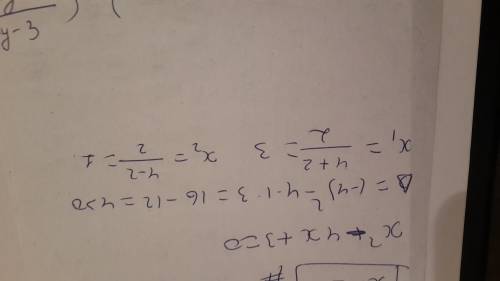 #
x² - 4x + 3 = 0
D = (-4)² - 4·1·3 = 16 - 12 = 4 > 0
x₁ = (4+2)/2 = 3   x₂ = (4-2)/2 = 1
y-3